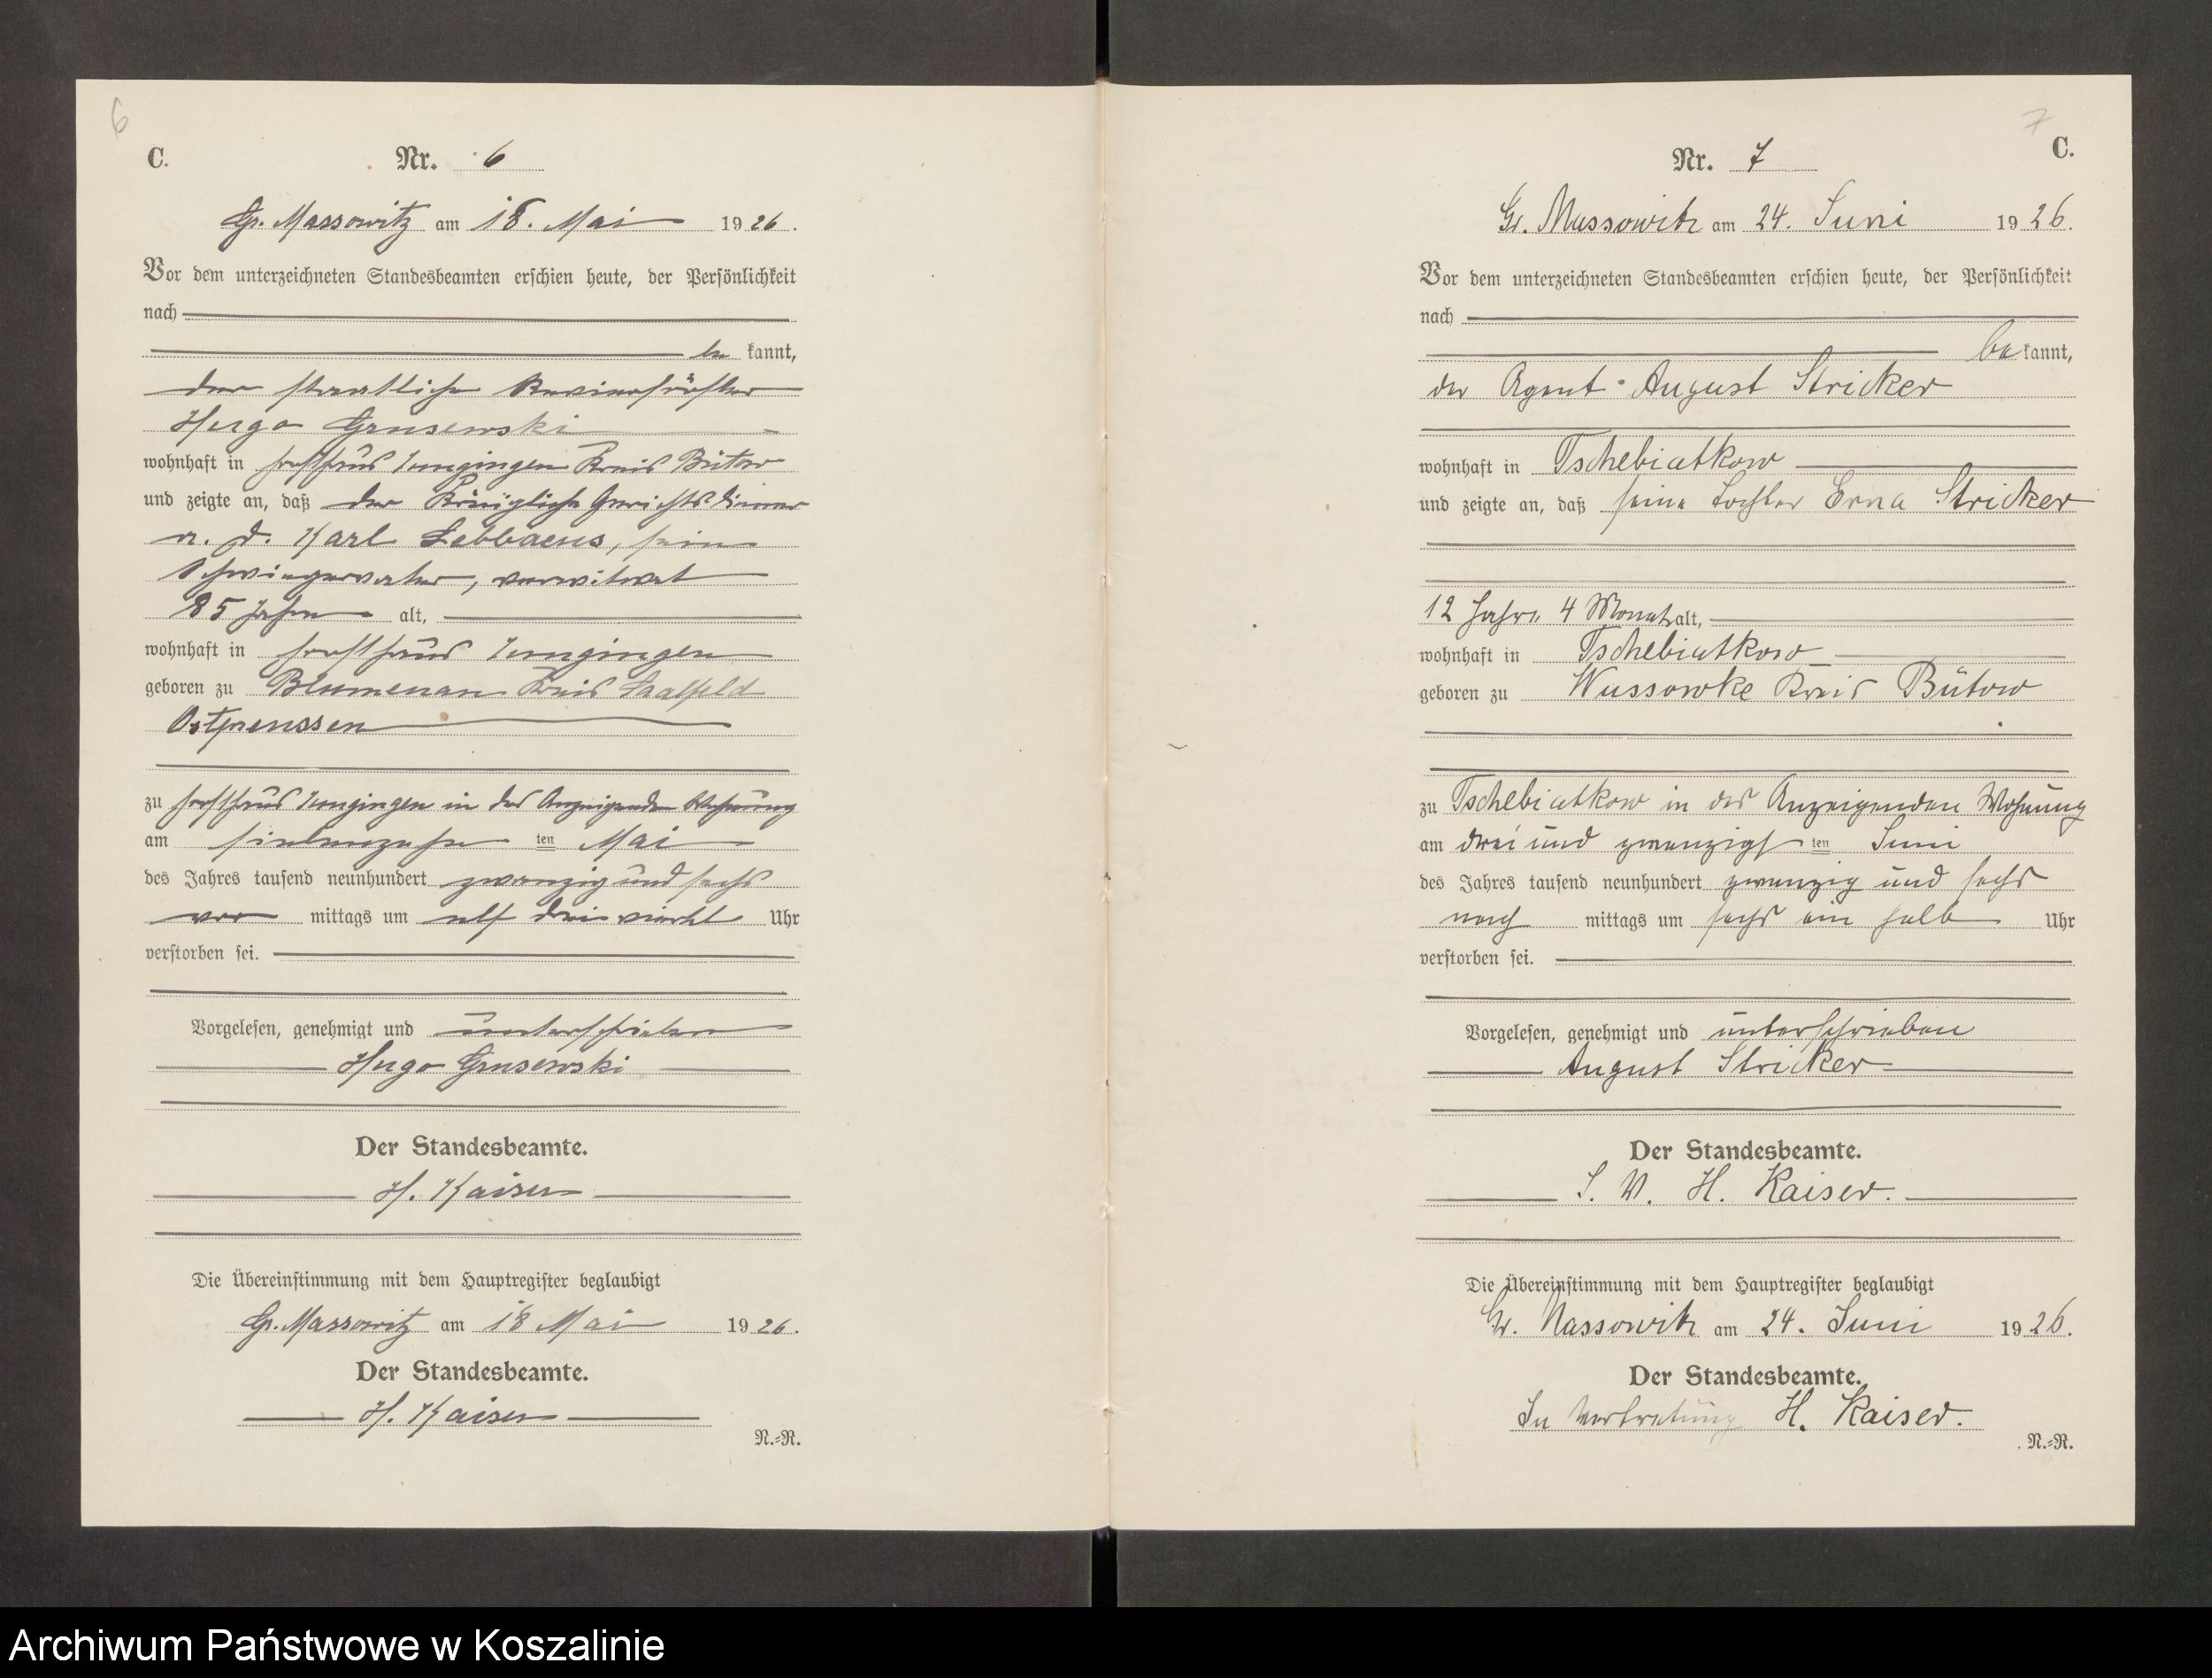 6
C.
Nr. 6
Gr. Massowitz am 18. Mai 1926.
Vor dem unterzeichneten Standesbeamten erschien heute, der Persönlichkeit
nach
be kannt,
der staatliche Revierförster
Hugo Grusewski
wohnhaft in Forsthaus Kreis Bütow
und zeigte an, daß der Königliche Gerichtsdiener
a. D. Karl Lebbaeus, sein
Schwiegervater, verwitwet
85 Jahre alt,
wohnhaft in Forsthaus
geboren zu Blumenau Kreis Saalfeld
Ostpreussen
zu Forsthaus in des Anzeigenden Wohnung
am siebenzehn ten Mai
des Jahres tausend neunhundert zwanzig und sechs
vor mittags um elf dreiviertel Uhr
verstorben sei.
Vorgelesen, genehmigt und unterschrieben
Hugo Grusewski
Der Standesbeamte.
H. Kaiser
Die Übereinstimmung mit dem Hauptregister beglaubigt
Gr. Massowitz am 18 Mai 1926.
Der Standesbeamte.
H. Kaiser
N.=R.
7
C.
Nr. 7
Gr. Massowitz am 24. Juni 1926.
Vor dem unterzeichneten Standesbeamten erschien heute, der Persönlichkeit
nach
be kannt,
der Agent August Stricker
wohnhaft in Tschebiatkow
und zeigte an, daß seine Tochter Erna Stricker
12 Jahre 4 Monate alt,
wohnhaft in Tschebiatkow
geboren zu Wussowke Kreis Bütow
zu Tschebiatkow in des Anzeigenden Wohnung
am drei und zwanzigs ten Juni
des Jahres tausend neunhundert zwanzig und sechs
nach mittags um sechs ein halb Uhr
verstorben sei.
Vorgelesen, genehmigt und unterschrieben
August Stricker
Der Standesbeamte.
I. V. H. Kaiser.
Die Übereinstimmung mit dem Hauptregister beglaubigt
Gr. Massowitz am 24. Juni 1926.
Der Standesbeamte.
In Vertretung H. Kaiser.
N.=R.
Archiwum Państwowe w Koszalinie